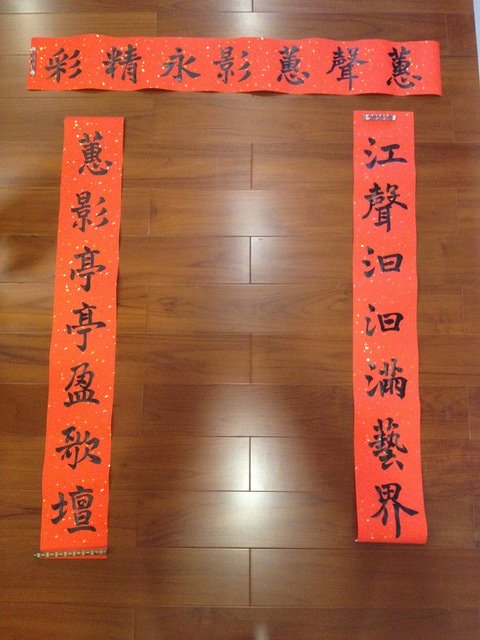 蕙聲蕙影永精彩
江聲汩汩滿藝界
蕙影亭亭盈歌壇